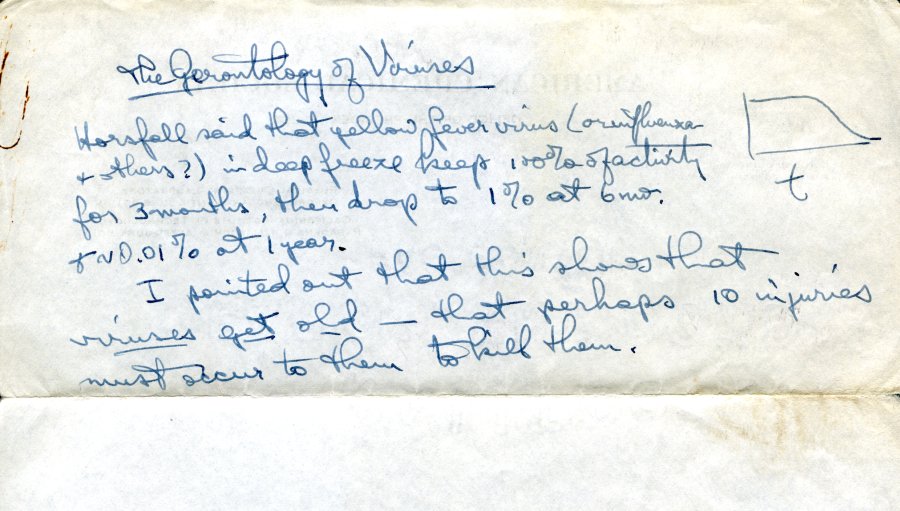 The Gerontology of Viruses
Horsfall said that yellow fever virus (or influenza
& others?) in deep freeze keep 100% of activity
for 3 months, then drop to 1% at 6 mo.
& ~0.01% at 1 year.
I pointed out that this shows that
viruses get old — that perhaps 10 injuries
must occur to them to kill them.
t